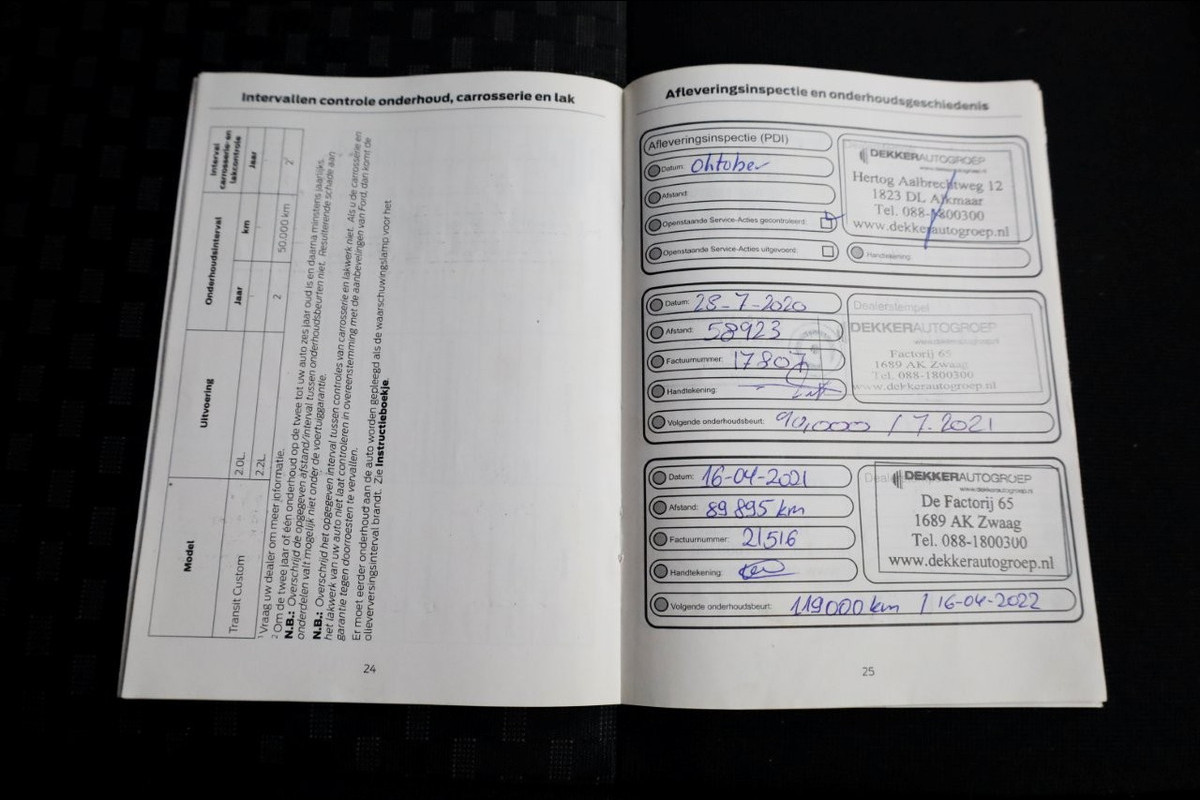 Intervallen controle onderhoud, carrosserie en lak
Model
Uitvoering
Onderhoudsinterval
Interval carrosserie- en lakcontrole
Jaar
km
Jaar
Transit Custom
2.0L
2
50.000 km
2
2.2L
¹ Vraag uw dealer om meer informatie.
² Om de twee jaar of één onderhoud op de twee tot uw auto zes jaar oud is en daarna minstens jaarlijks.
N.B.: Overschrijd de opgegeven afstand/interval tussen onderhoudsbeurten niet. Resulterende schade aan
onderdelen valt mogelijk niet onder de voertuiggarantie.
N.B.: Overschrijd het opgegeven interval tussen controles van carrosserie en lakwerk niet. Als u de carrosserie en
het lakwerk van uw auto niet laat controleren in overeenstemming met de aanbevelingen van Ford, dan komt de
garantie tegen doorroesten te vervallen.
Er moet eerder onderhoud aan de auto worden gepleegd als de waarschuwingslamp voor het
olieverversingsinterval brandt. Zie Instructieboekje.
24
Afleveringsinspectie en onderhoudsgeschiedenis
Afleveringsinspectie (PDI)
Datum: Oktober
Afstand:
Openstaande Service-Acties gecontroleerd:
Openstaande Service-Acties uitgevoerd:
DEKKERAUTOGROEP
www.dekkerautogroep.nl
Hertog Aalbrechtweg 12
1823 DL Alkmaar
Tel. 088-1800300
www.dekkerautogroep.nl
Handtekening:
Datum: 28-7-2020
Afstand: 58923
Factuurnummer: 17807
Handtekening:
Dealerstempel
DEKKERAUTOGROEP
www.dekkerautogroep.nl
Factorij 65
1689 AK Zwaag
Tel. 088-1800300
www.dekkerautogroep.nl
Volgende onderhoudsbeurt: 90,000 / 7.2021
Datum: 16-04-2021
Afstand: 89 895 km
Factuurnummer: 21516
Handtekening:
DEKKERAUTOGROEP
www.dekkerautogroep.nl
De Factorij 65
1689 AK Zwaag
Tel. 088-1800300
www.dekkerautogroep.nl
Volgende onderhoudsbeurt: 119000 km / 16-04-2022
25